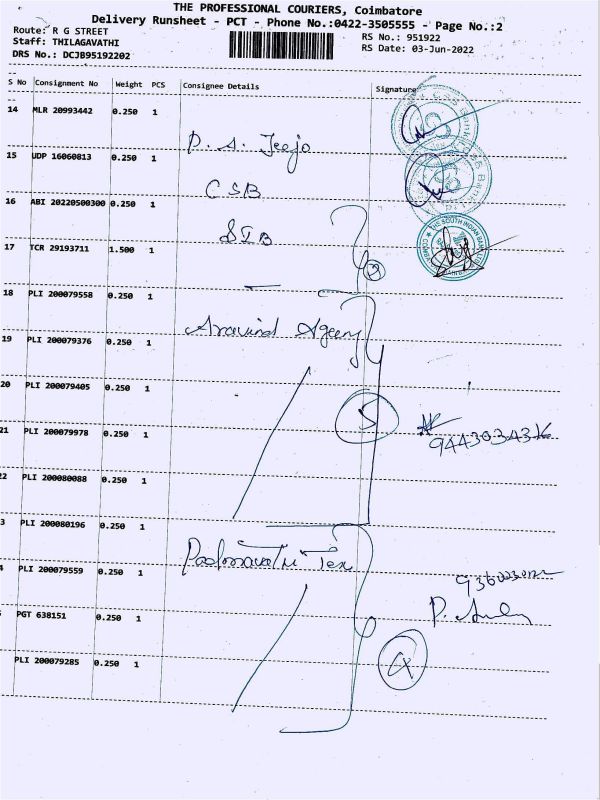 THE PROFESSIONAL COURIERS, Coimbatore
Delivery Runsheet - PCT - Phone No.:0422-3505555 - Page No.:2
Route: R G STREET
Staff: THILAGAVATHI
DRS No.: DCJB95192202
RS No.: 951922
RS Date: 03-Jun-2022
S No Consignment No Weight PCS Consignee Details Signature
14 MLR 20993442 0.250 1
P. S. Jeejo
15 UDP 16060813 0.250 1
CSB
16 ABI 20220500300 0.250 1
SIB
17 TCR 29193711 1.500 1
2
18 PLI 200079558 0.250 1
Aravind Agency
19 PLI 200079376 0.250 1
20 PLI 200079405 0.250 1
5
21 PLI 200079978 0.250 1
22 PLI 200080088 0.250 1
3 PLI 200080196 0.250 1
Padmavathi Tex
4 PLI 200079559 0.250 1
PGT 638151 0.250 1
4
PLI 200079285 0.250 1
THE SOUTH INDIAN BANK LTD